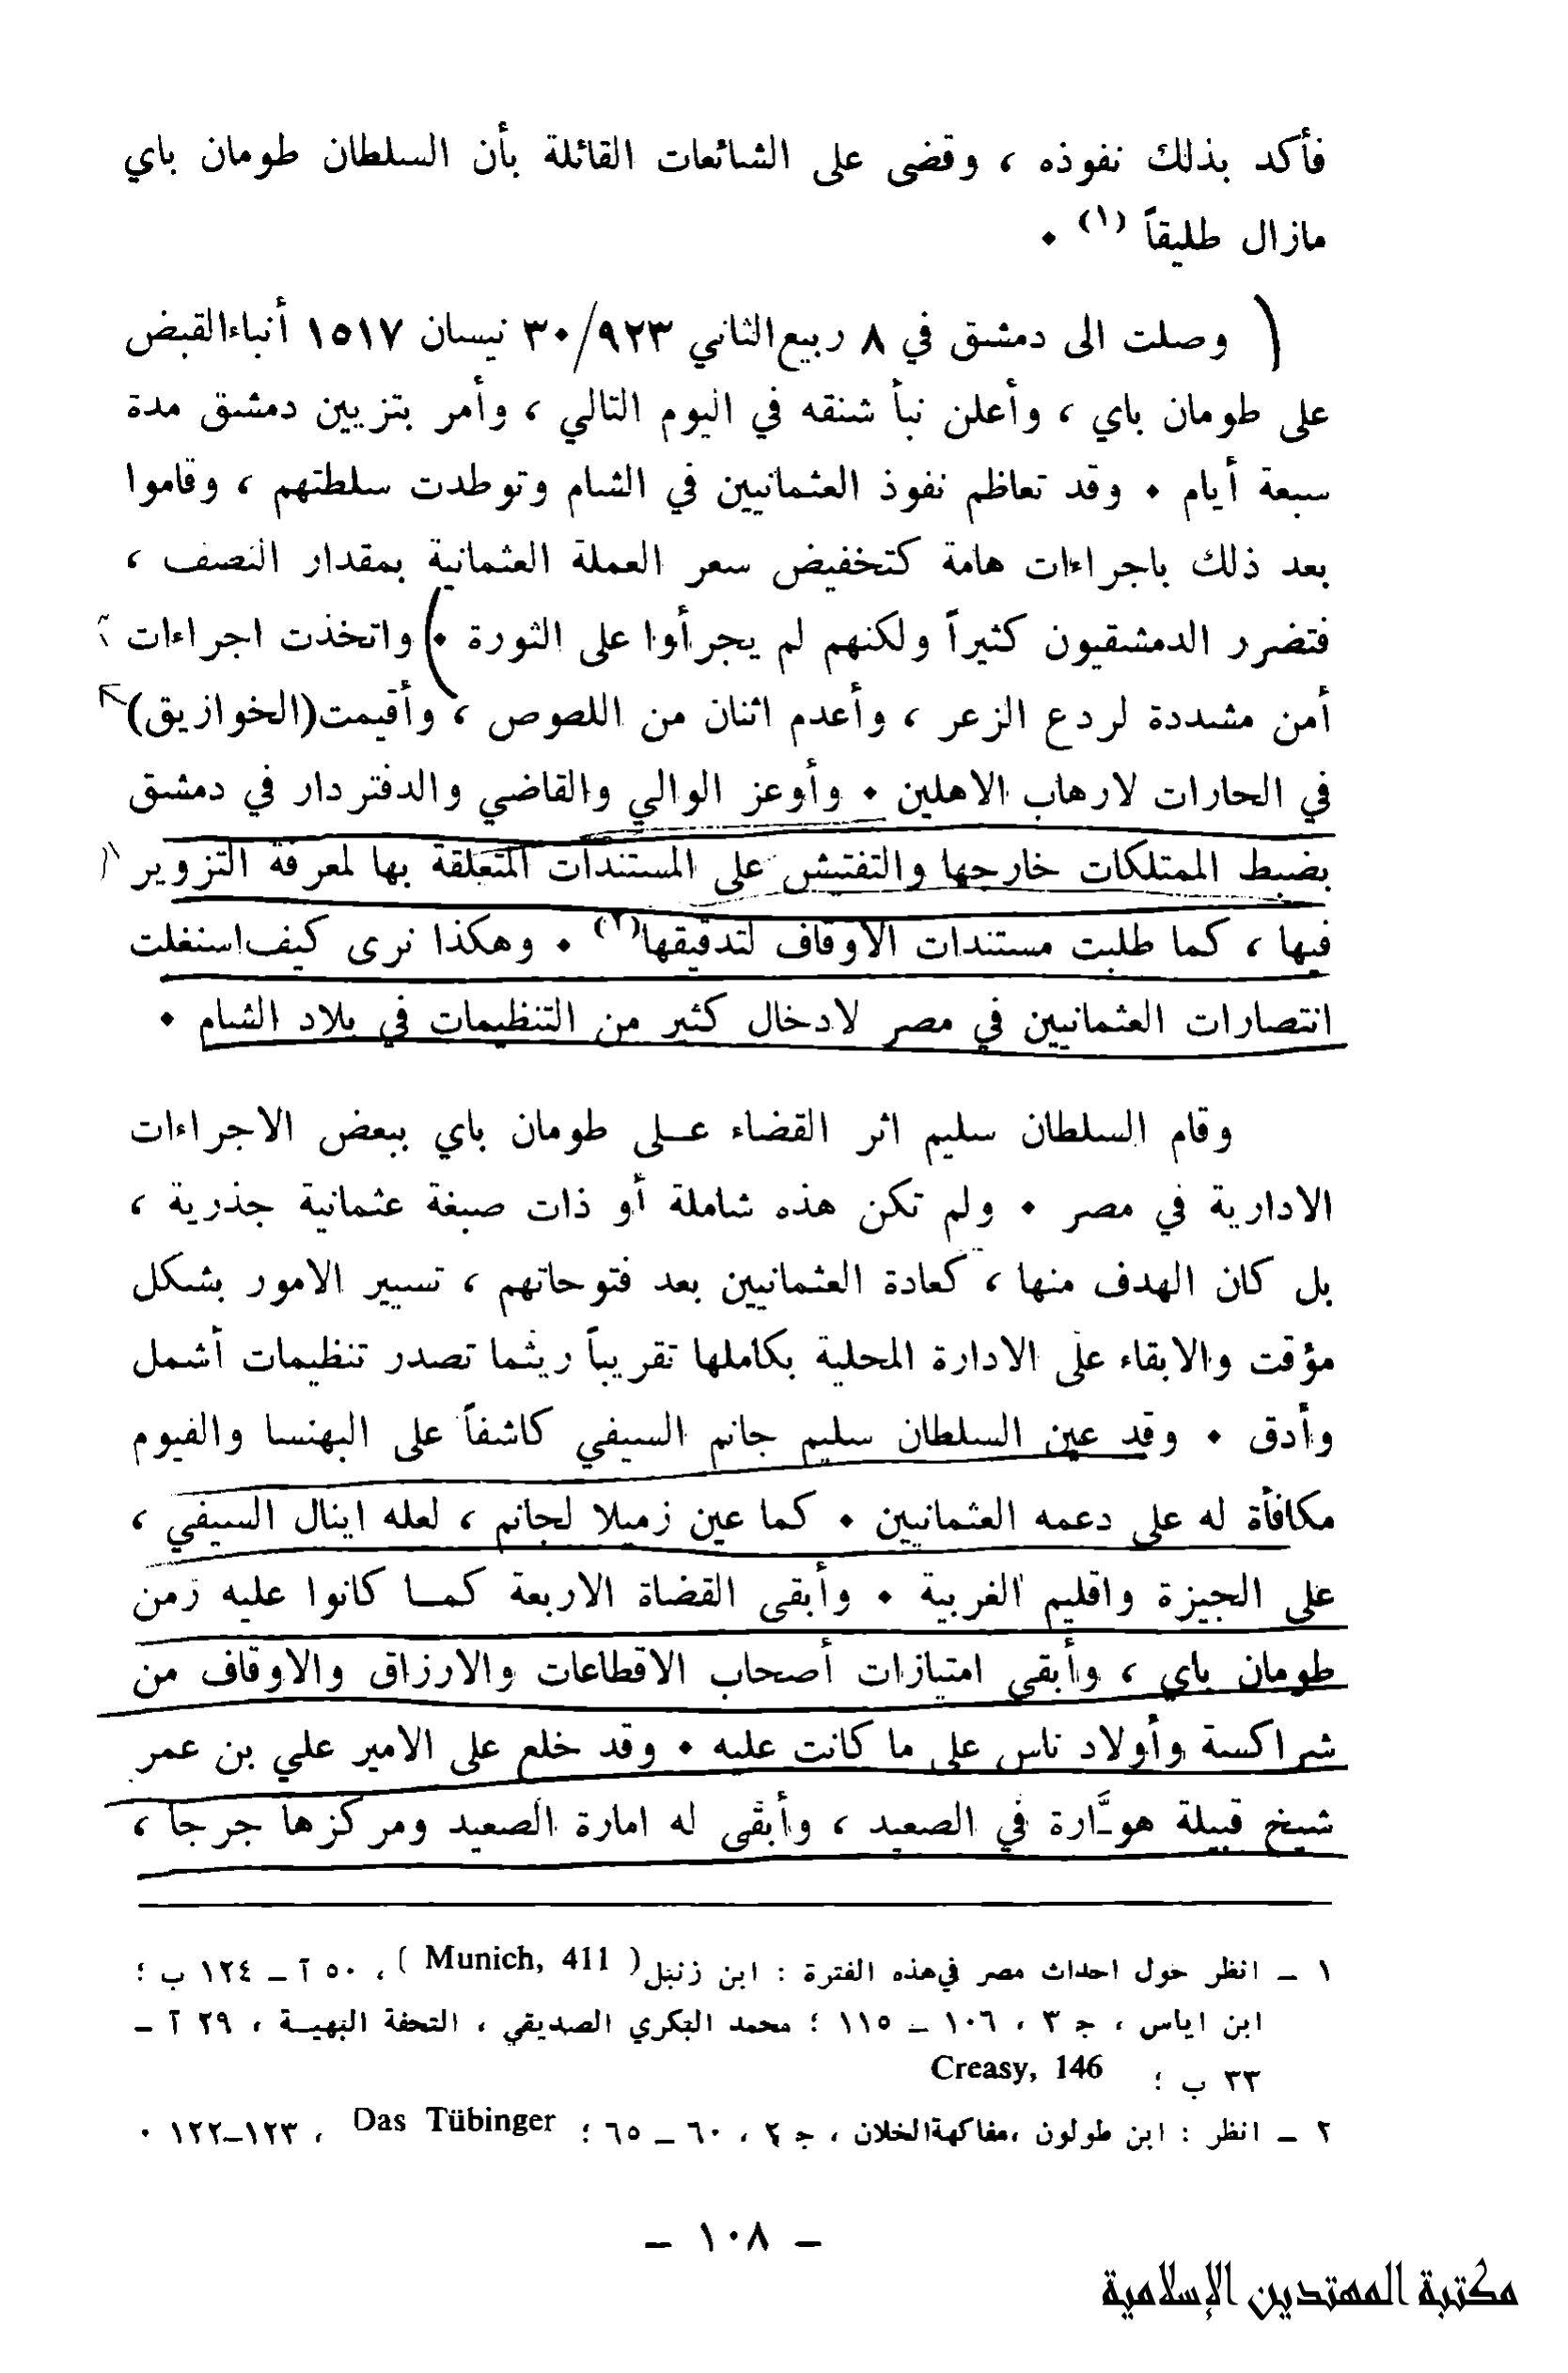 فأكد بذلك نفوذه ، وقضى على الشائعات القائلة بأن السلطان طومان باي
مازال طليقاً (١) ٠
وصلت الى دمشق في ٨ ربيع الثاني ٣٠/٩٢٣ نيسان ١٥١٧ أنباء القبض
على طومان باي ، وأعلن نبأ شنقه في اليوم التالي ، وأمر بتزيين دمشق مدة
سبعة أيام ٠ وقد تعاظم نفوذ العثمانيين في الشام وتوطدت سلطتهم ، وقاموا
بعد ذلك باجراءات هامة كتخفيض سعر العملة العثمانية بمقدار النصف ،
فتضرر الدمشقيون كثيراً ولكنهم لم يجرأوا على الثورة ٠ واتخذت اجراءات
أمن مشددة لردع الزعر ، وأعدم اثنان من اللصوص ، وأقيمت (الخوازيق)
في الحارات لارهاب الاهلين ٠ وأوعز الوالي والقاضي والدفتردار في دمشق
بضبط الممتلكات خارجها والتفتيش على المستندات المتعلقة بها لمعرفة التزوير
فيها ، كما طلبت مستندات الاوقاف لتدقيقها(٢) ٠ وهكذا نرى كيف استغلت
انتصارات العثمانيين في مصر لادخال كثير من التنظيمات في بلاد الشام ٠
وقام السلطان سليم اثر القضاء عـلى طومان باي ببعض الاجراءات
الادارية في مصر ٠ ولم تكن هذه شاملة أو ذات صبغة عثمانية جذرية ،
بل كان الهدف منها ، كعادة العثمانيين بعد فتوحاتهم ، تسيير الامور بشكل
مؤقت والابقاء على الادارة المحلية بكاملها تقريباً ريثما تصدر تنظيمات أشمل
وأدق ٠ وقد عين السلطان سليم جانم السيفي كاشفاً على البهنسا والفيوم
مكافأة له على دعمه العثمانيين ٠ كما عين زميلا لجانم ، لعله اينال السيفي ،
على الجيزة واقليم الغربية ٠ وأبقى القضاة الاربعة كمـا كانوا عليه زمن
طومان باي ، وأبقى امتيازات أصحاب الاقطاعات والارزاق والاوقاف من
شراكسة وأولاد ناس على ما كانت عليه ٠ وقد خلع على الامير علي بن عمر
شيخ قبيلة هوَّارة في الصعيد ، وأبقى له امارة الصعيد ومركزها جرجا ،
١ ـ انظر حول احداث مصر في هذه الفترة : ابن زنبل ( Munich, 411 ) ، ٥٠ آ ـ ١٢٤ ب ؛
ابن اياس ، ج ٣ ، ١٠٦ ـ ١١٥ ؛ محمد البكري الصديقي ، التحفة البهيـة ، ٢٩ آ ـ
٣٣ ب ؛ Creasy, 146
٢ ـ انظر : ابن طولون ، مفاكهة الخلان ، ج ٢ ، ٦٠ ـ ٦٥ ؛ Das Tübinger ، ١٢٣ـ١٢٢ ٠
ـ ١٠٨ ـ
مكتبة المهتدين الإسلامية